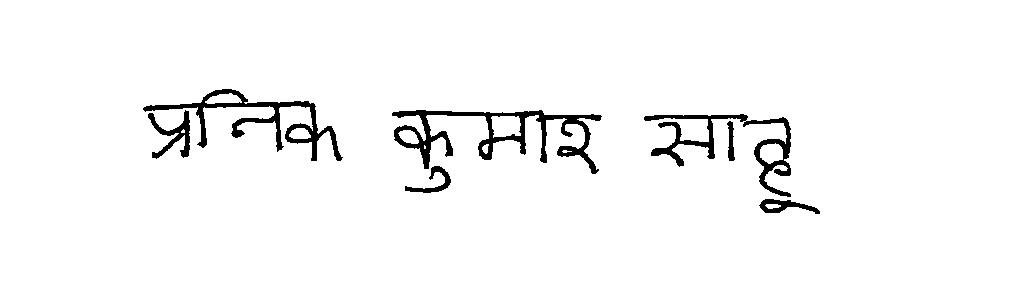 प्रनिक कुमार साहू